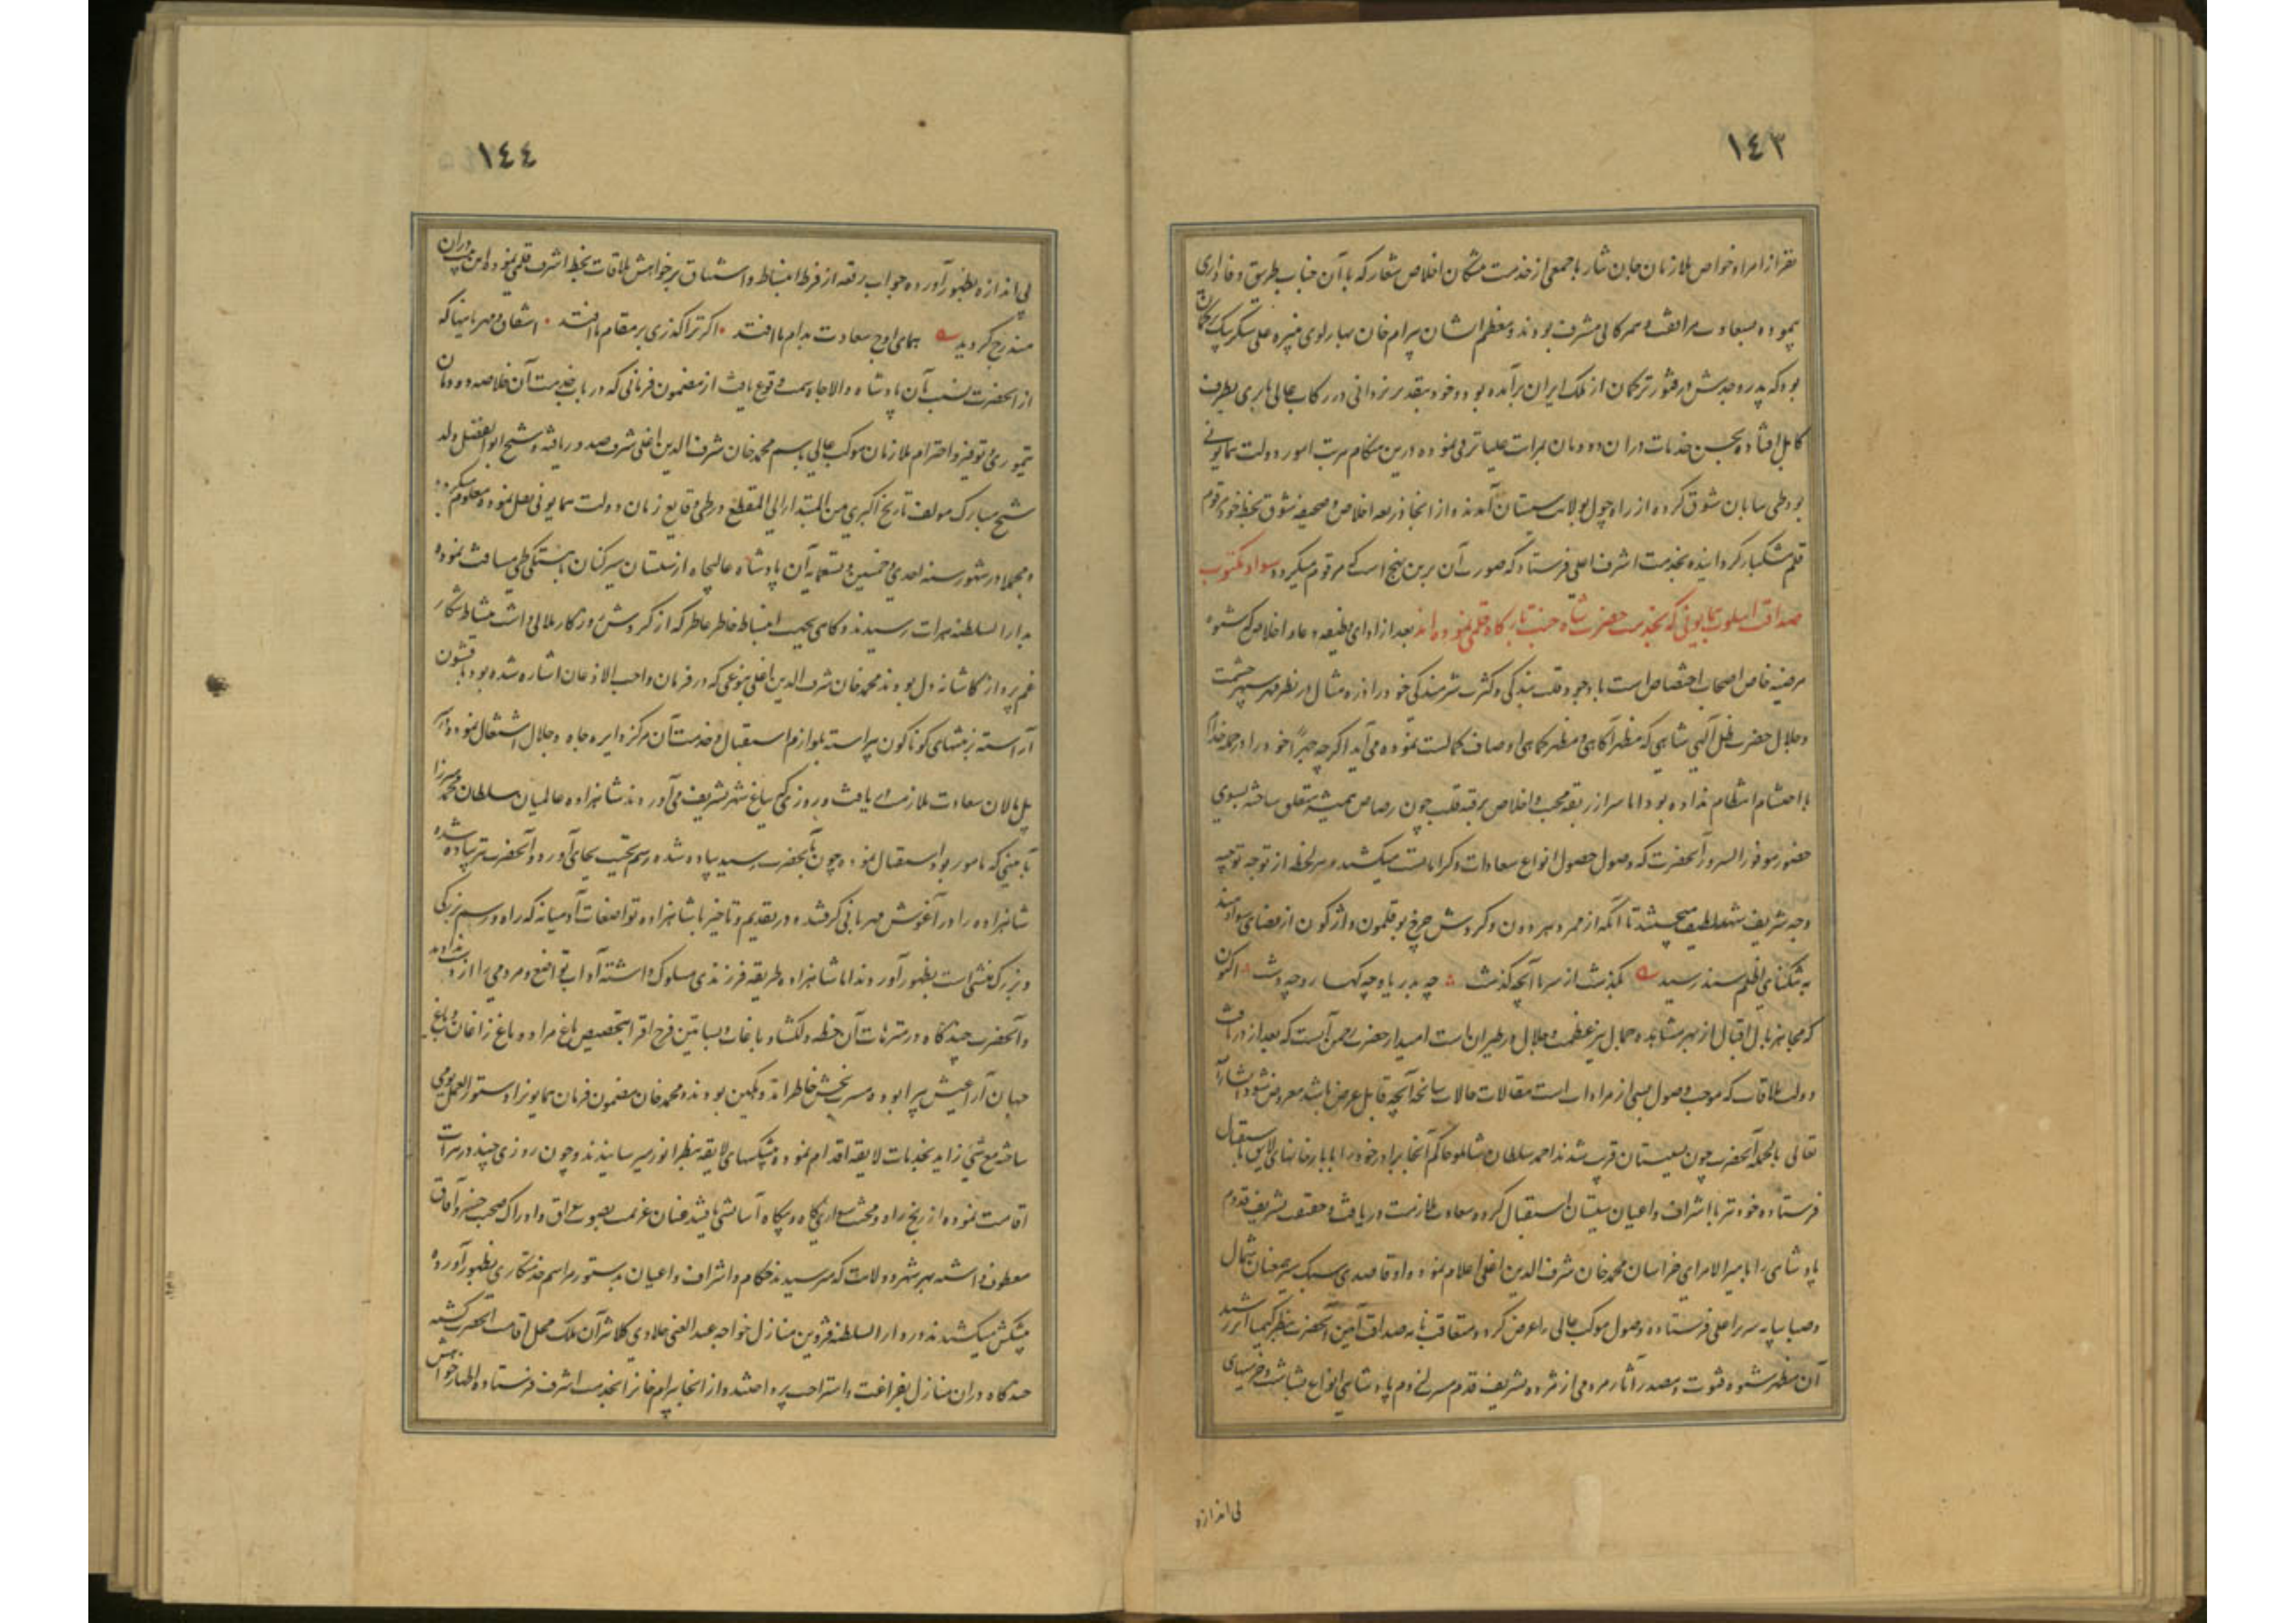 ١٤٣
نفر از امرا و خواص ملازمان جان نثار با جمعی از خدمت متکان اخلاص شعار که با آن جناب طریق وفاداری
پیموده بسعادت مرافقت و همرکابی مشرف بودند و معظم ایشان بیرام خان بهارلوی نبیره علی شکر بیک ترکمان
بود که پدر و جدش در فتور ترکمان از ملک ایران برآمده بود و خود بتقدیر یزدانی در رکاب عالی بابری بطرف
کابل افتاده بحسن خدمات در آن دودمان بمراتب علیا ترقی نموده درین هنگام مرتب امور دولت همایونی
بود طی بیابان شوق کرده از راه چول بولایت سیستان آمدند و از آنجا ذریعه اخلاص و صحیفه شوق بخط خود مرقوم
قلم مشکبار گردانیده بخدمت اشرف اعلی فرستاد که صورت آن برین نهج است که مرقوم میگردد سواد مکتوب
صداقت اسلوب همایونی که بخدمت حضرت شاه جنت بارگاه قلمی نموده‌اند بعد از ادای وظیفه دعا و اخلاص که شیوه
مرضیه خاص اصحاب اختصاص است با وجود قلت بندگی و کثرت شرمندگی خود را ذره مثال در نظر مهر سپهر حشمت
و جلال حضرت ظل آلهی شاهی که مظهر آگاهی و مظهر کماهی اوصاف کمالست نموده می‌آید اگرچه جبراً خود را در جمله خدام
با احتشام انتظام نداده بود اما سر از ربقه محبت و اخلاص بر رقبه قلب چون رصاص همیشه متعلق ساخته بسوی
حضور موفور السرور آنحضرت که وصول حصول انواع سعادات و کراماتست میکشید و هر لحظه از توجه توجیه
وجه شریف شهد لطیف میچشید تا آنکه از ممر دهر دون و گردش چرخ بوقلمون واژگون از فضای سواد هند
به تنگنای اقلیم سند رسید بگذشت از سر ما آنچه گذشت چه بدریا و چه کهسار و چه دشت اکنون
که مجاهر بال اقبال از بهر مشاهده جمال پیر عظمت و جلال در طیران است امید از حضرت رحمن آنست که بعد از دریافت
دولت ملاقات که موجب وصول بسی از مرادات است مقالات حالات سانحه آنچه قابل عرض باشد معروض شود انشاءالله
تعالی بالجمله آنحضرت چون بسیستان قریب شدند احمد سلطان شاملو حاکم آنجا برادر خود را با بارخانهای لایق باستقبال
فرستاده خود نیز با اشراف و اعیان سیستان استقبال کرده سعادت ملازمت دریافت و حقیقت تشریف قدوم
پادشاهی را بامیرالامرای خراسان محمد خان شرف الدین اغلی اعلام نمود و او قاصدی سبک سیر همعنان شمال
و صبا بپایه سریر اعلی فرستاده وصول موکب عالی را عرض کرد و متعاقب نامه صداقت آئین آنحضرت بنظر کیمیا اثر رسید
آن مظهر شیوه فتوت و مصدر آثار مردمی از مژده تشریف قدوم مسرت لزوم پادشاهی انواع بشاشت و خرمیهای
بی اندازه
١٤٤
بی اندازه بظهور آورده جواب رقعه از فرط انبساط و اشتیاق بر خواهش ملاقات بخط اشرف قلمی نموده این بیت در آن
مندرج گردید همای اوج سعادت بدام ما افتد اگر ترا گذری بر مقام ما افتد اشفاق و مهربانیها که
از آنحضرت نسبت بآن پادشاه والاجاه سمت وقوع یافت از مضمون فرمانی که در باب خدمت آن خلاصه دودمان
تیموری و توقیر و احترام ملازمان موکب عالی باسم محمد خان شرف الدین اغلی شرف صدور یافته و شیخ ابوالفضل ولد
شیخ مبارک مولف تاریخ اکبری من المبتدا الی المقطع در طی وقایع زمان دولت همایونی نقل نموده معلوم میگردد
و مجملا در شهور سنه احدی و خمسین و تسعمایه آن پادشاه عالیجاه از سیستان سیرکنان بآهستگی طی مسافت نموده
بدارالسلطنه هرات رسیدند و گاهی بجهت انبساط خاطر عاطر که از گردش روزگار ملالی داشت بنشاط شکار
غم پرداز کاشانه دل بودند محمد خان شرف الدین اغلی بنوعی که در فرمان واجب الاذعان اشاره شده بود با قشون
آراسته بزینتهای گوناگون پیراسته بلوازم استقبال و خدمت آن مرکز دایره جاه و جلال اشتغال نموده در
پل مالان سعادت ملازمت یافت و روزی که بباغ شهر تشریف می‌آوردند شاهزاده عالمیان سلطان محمد میرزا
بآیینی که مامور بود استقبال نموده چون بآنحضرت رسید پیاده شده رسم تحیت بجای آورد و آنحضرت نیز پیاده شده
شاهزاده را در آغوش مهربانی گرفتند و در تقدیم و تاخیر با شاهزاده تواضعات آدمیانه که راه و رسم بزرگی
و بزرگ منشی است بظهور آوردند اما شاهزاده طریقه فرزندی مسلوک داشته آداب تواضع و مردمی را از دست نداد
و آنحضرت چندگاه در متنزهات آن خطه دلگشا و باغات و بساتین فرح افزا بتخصیص باغ مراد و باغ زاغان و باغ
جهان آرا عیش پیرا بوده مسرت بخش خاطر اندوهگین بودند و محمد خان مضمون فرمان همایون را دستور العمل یومی
ساخته مع شئ زاید بخدمات لایقه اقدام نموده پیشکشهای لایقه بنظر انور میرسانیدند و چون روزی چند در هرات
اقامت نموده از رنج راه و محنت سواری گاه و بیگاه آسایشی یافتند عنان عزیمت بصوب عراق و ادراک صحبت خسرو آفاق
معطوف داشته بهر شهر و ولایت که میرسیدند حکام و اشراف و اعیان بدستور مراسم خدمتکاری بظهور آورده
پیشکش میکشیدند و در دارالسلطنه قزوین منازل خواجه عبدالغنی جلادتی کلانتر آن ملک محل اقامت آنحضرت گشته
چندگاه در آن منازل بفراغت و استراحت پرداختند و از آنجا بیرام خان را بخدمت اشرف فرستاده اظهار خواهش